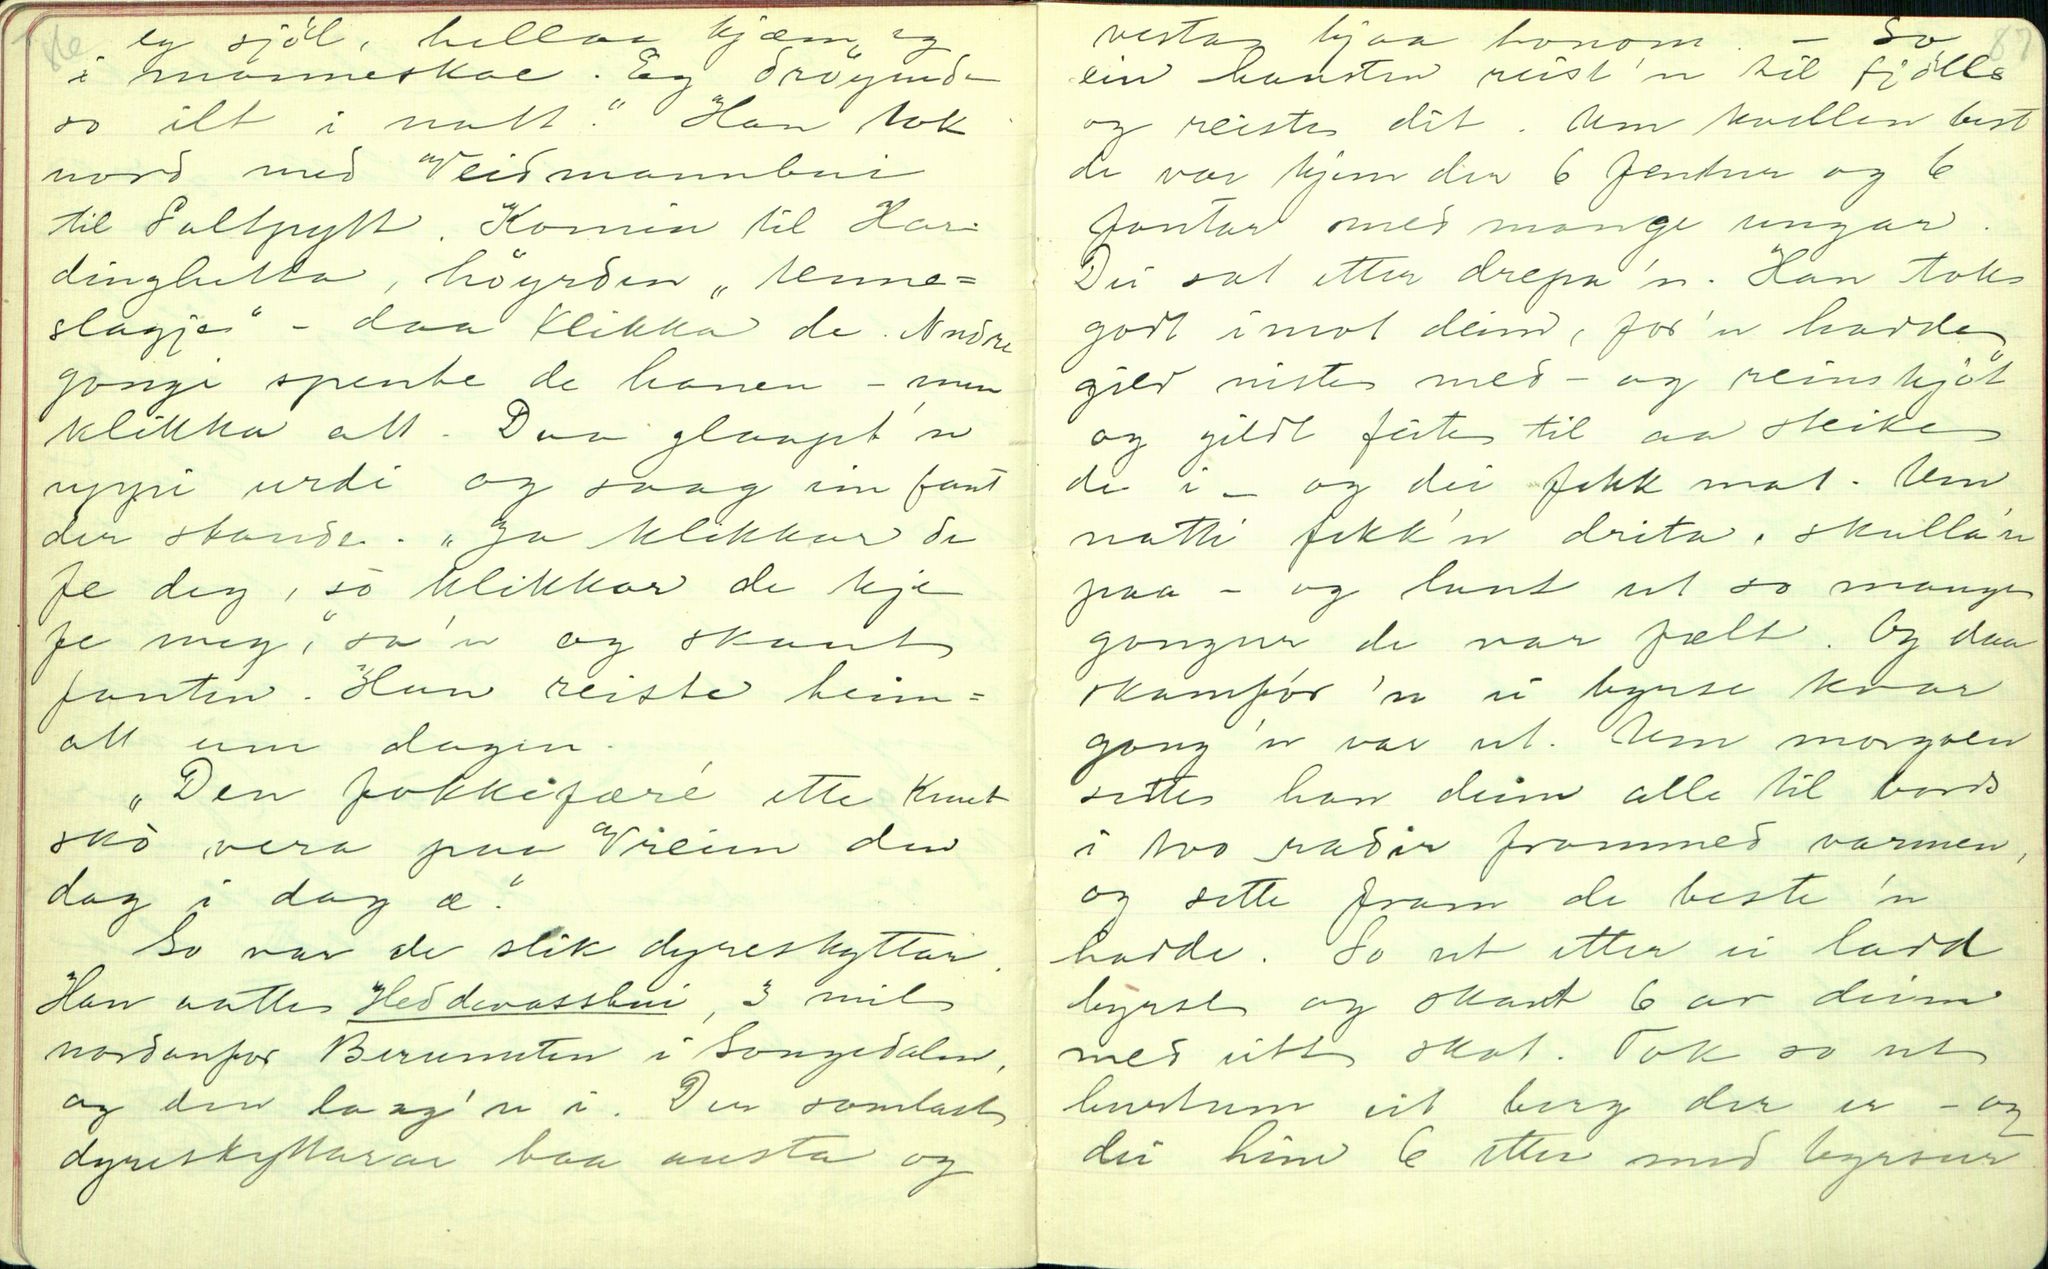 eg sjöl, hellaa kjæm eg
i manneskae. Eg dröymde
so ilt i natt." Han tok
nord med Veidmannbui
til Saltpytt. Komin til Har-
dinghetta, höyrden „tenne=
slagje" - daa klikka de. Andre
gongi spente de hanen - men
klikka att. Daa glaapt'n
uppi urdi og saag ein fant
der stande. „Ja klikkar de
fe deg, so klikkar de kje
fe meg," sa'n og skaut
fanten. Han reiste heim=
att um dagen.
„Den fokkifæré ette Knut
sko vera paa Vreim den
dag i dag æ."
So var de slik dyreskyttar.
Han aatte Heddevassbui, 3 mil
nordanfor Berunuten i Songedalen,
og den laag'n i. Der samlast
dyreskyttarar baa austa og
86
vesta kjaa honom. - So
ein hausten reist'n til fjölls
og reiste dit. Um kvellen best
de var kjem der 6 fentur og 6
fantar med mange ungar.
Dei sat etter drepa'n. Han tok
godt imot deim, for'n hadde
gild niste med - og reinskjöt
og gildt feite til aa steike
de i - og dei fekk mat. Um
natti fekk'n drita, skulla'n
paa - og laut ut so mange
gongur de var fælt. Og daa
skamfór'n ei byrse kvar
gong'n var ut. Um morgoen
sette han deim alle til bords
i tvo radir frammed varmen,
og sette fram de beste'n
hadde. So ut etter ei ladd
byrse og skaut 6 av deim
med eitt skot. Tok so ut
burtum eit berg der er - og
dei hine 6 etter med byrsur
87